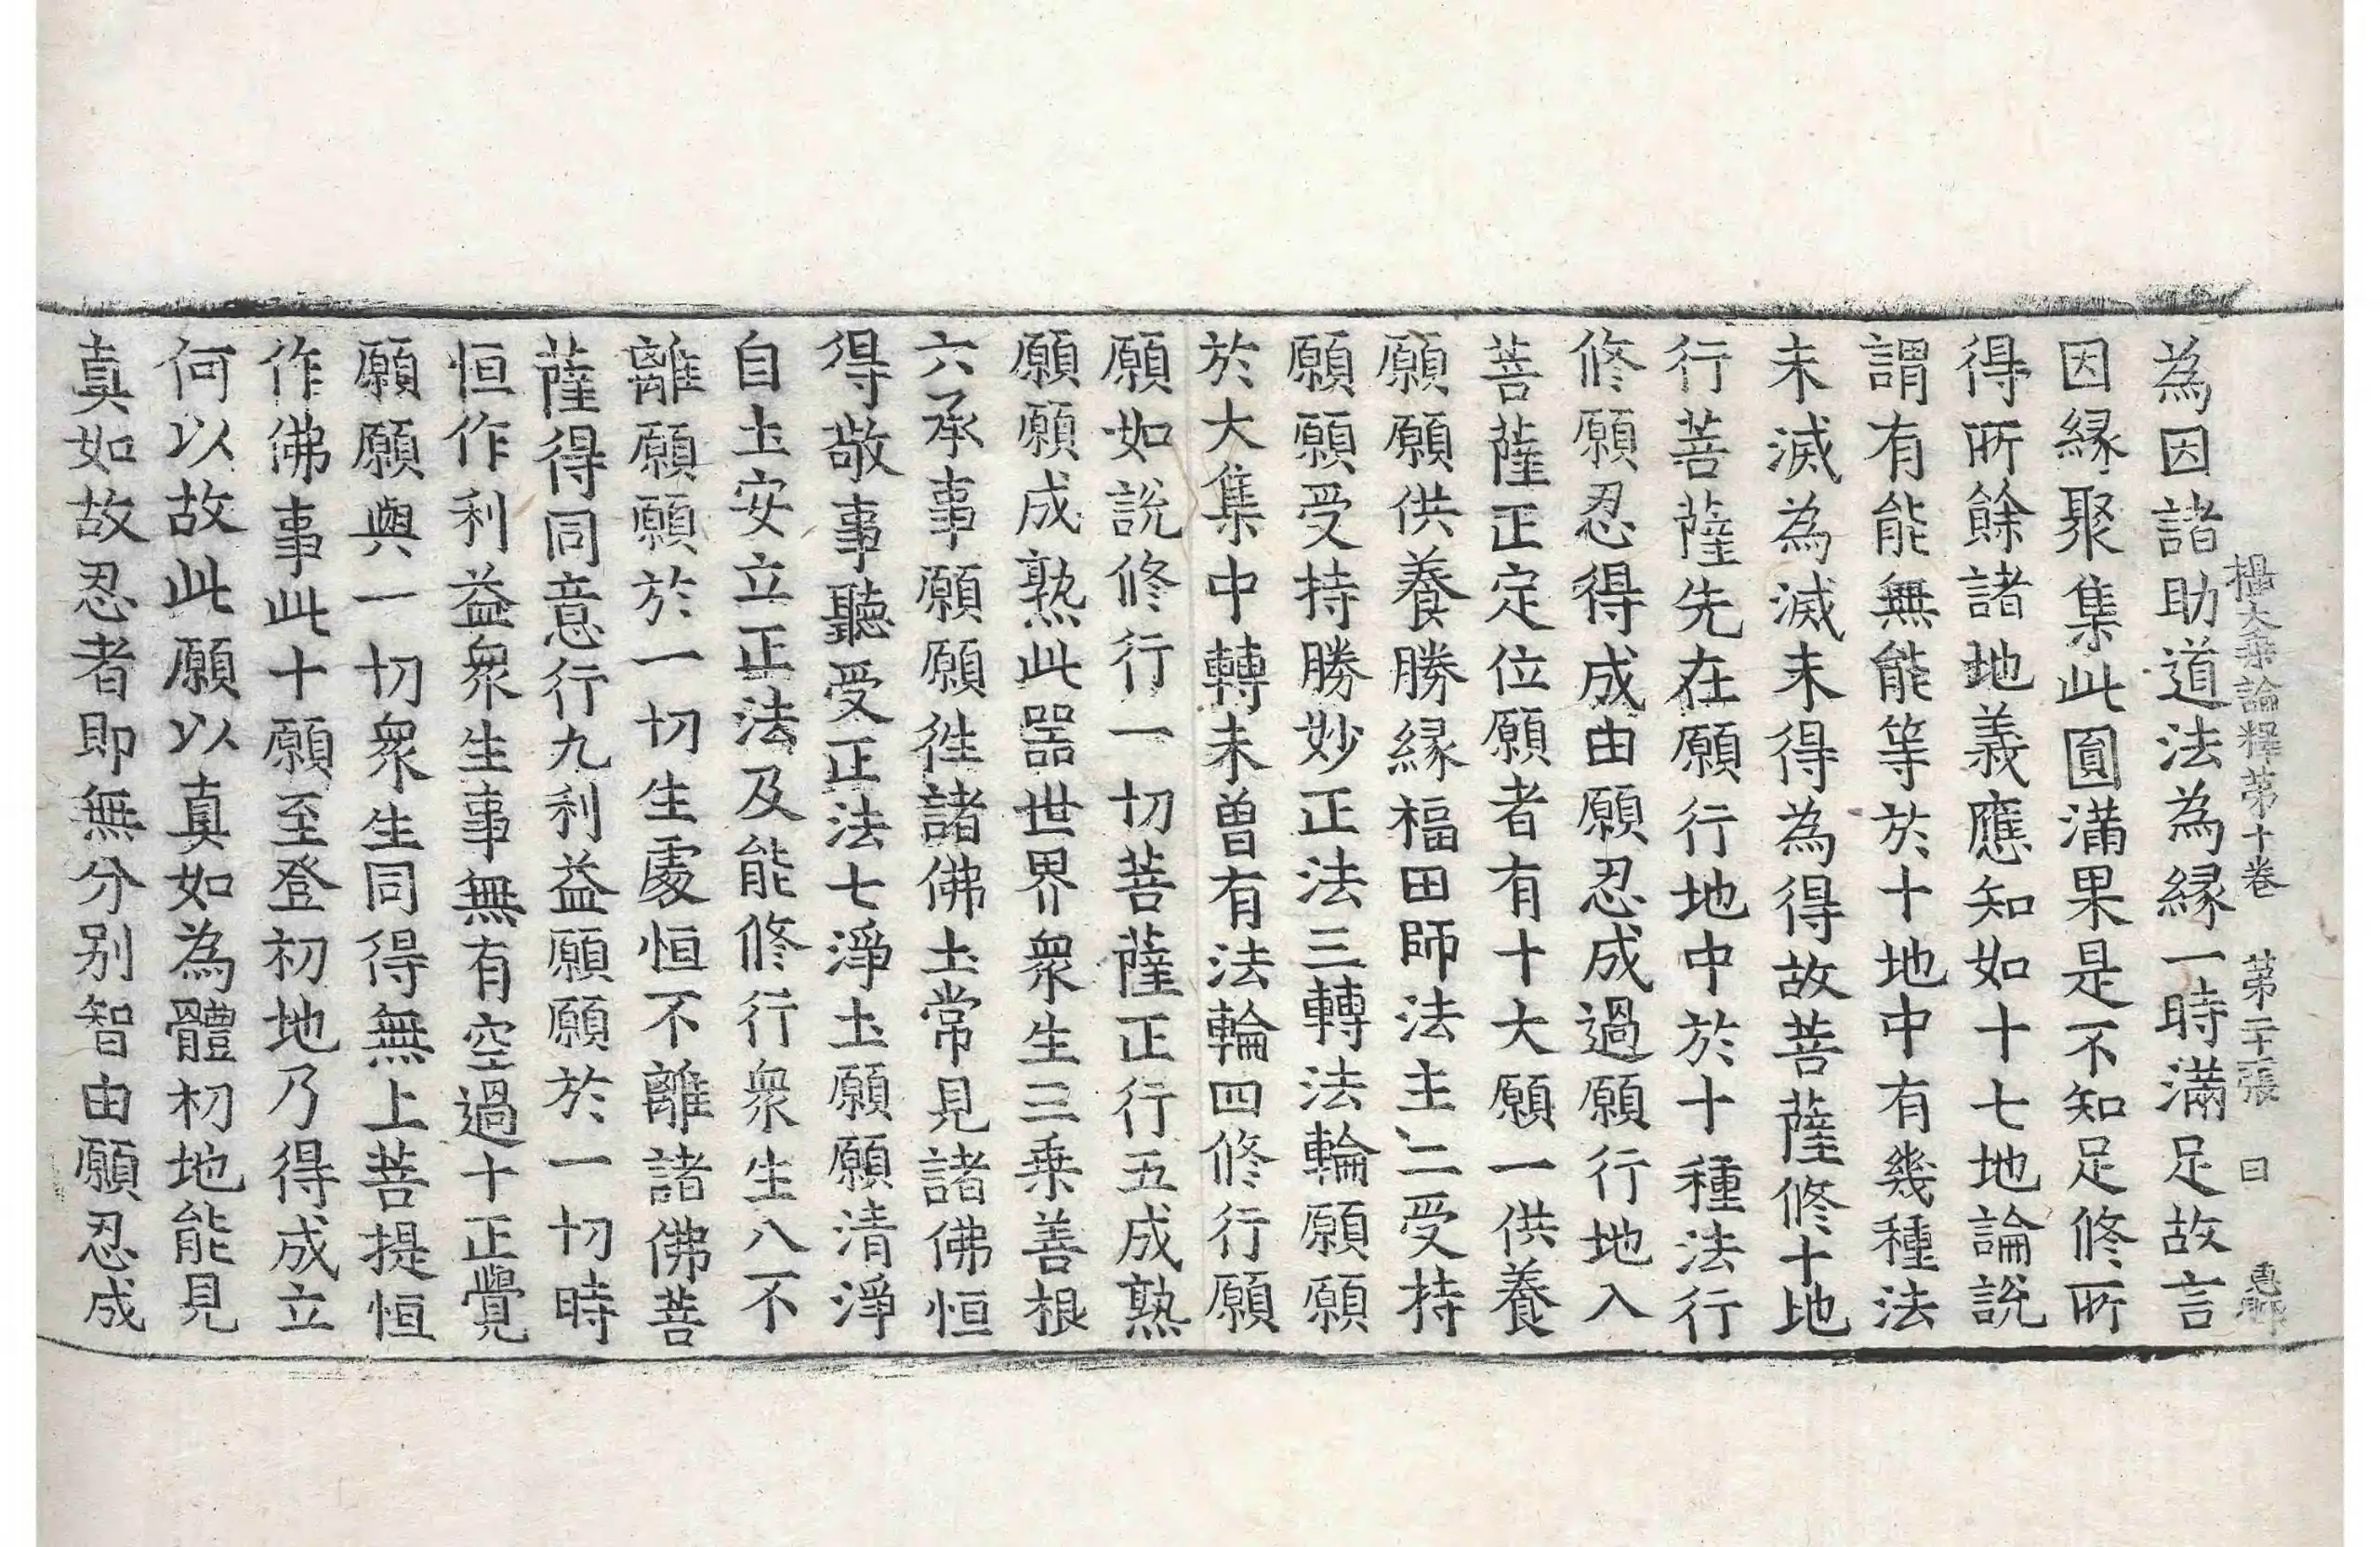 攝大乘論釋第十卷　第二十張　曰
為因諸助道法為緣一時滿足故言
因緣聚集此圓滿果是不知足修所
得所餘諸地義應知如十七地論說
謂有能無能等於十地中有幾種法
未滅為滅未得為得故菩薩修十地
行菩薩先在願行地中於十種法行
修願忍得成由願忍成過願行地入
菩薩正定位願者有十大願一供養
願願供養勝緣福田師法主二受持
願願受持勝妙正法三轉法輪願願
於大集中轉未曾有法輪四修行願
願如說修行一切菩薩正行五成熟
願願成熟此器世界衆生三乗善根
六承事願願徃諸佛土常見諸佛恒
得敬事聽受正法七淨土願願清淨
自土安立正法及能修行衆生八不
離願願於一切生處恒不離諸佛菩
薩得同意行九利益願願於一切時
恒作利益衆生事無有空過十正覺
願願與一切衆生同得無上菩提恒
作佛事此十願至登初地乃得成立
何以故此願以真如為體初地能見
真如故忍者即無分別智由願忍成